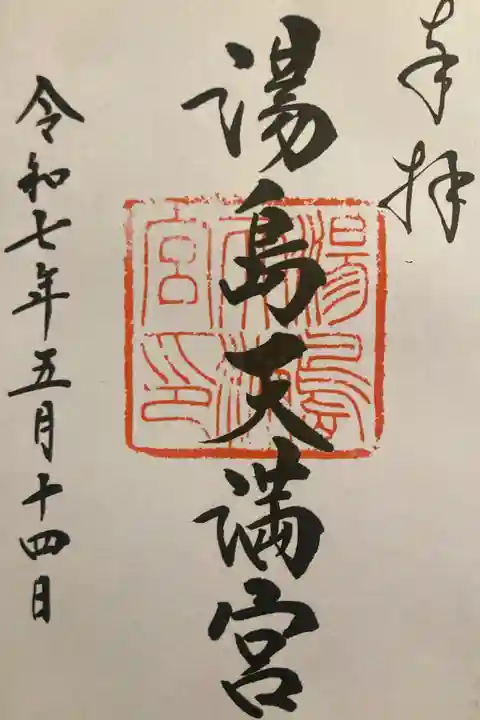 奉拝
湯島天満宮
湯島天満宮印
令和七年五月十四日